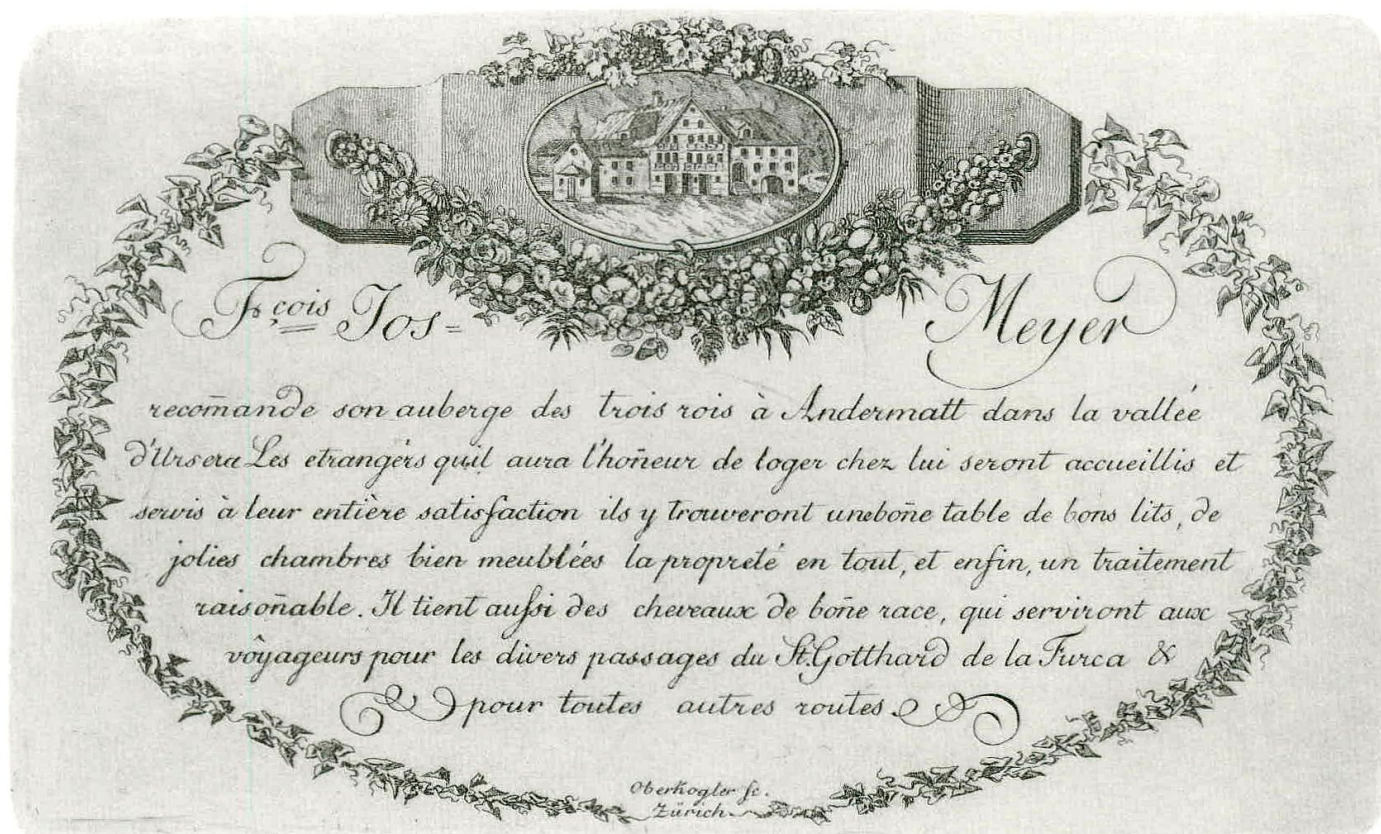 Fçois Jos= Meyer
recom̄ande son auberge des trois rois à Andermatt dans la vallée
d'Ursera Les etrangérs quil aura l'hon̄eur de loger chez lui seront accueillis et
servis à leur entière satisfaction ils y trouveront une bon̄e table de bons lits, de
jolies chambres bien meublées la propreté en tout, et enfin, un traitement
raison̄able. Il tient aufsi des cheveaux de bon̄e race, qui serviront aux
vôyageurs pour les divers passages du St. Gotthard de la Furca &
pour toutes autres routes.
Oberkogler sc.
Zürich.